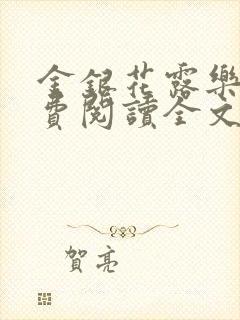 金銀花露樂
費閱讀全文
賀亮